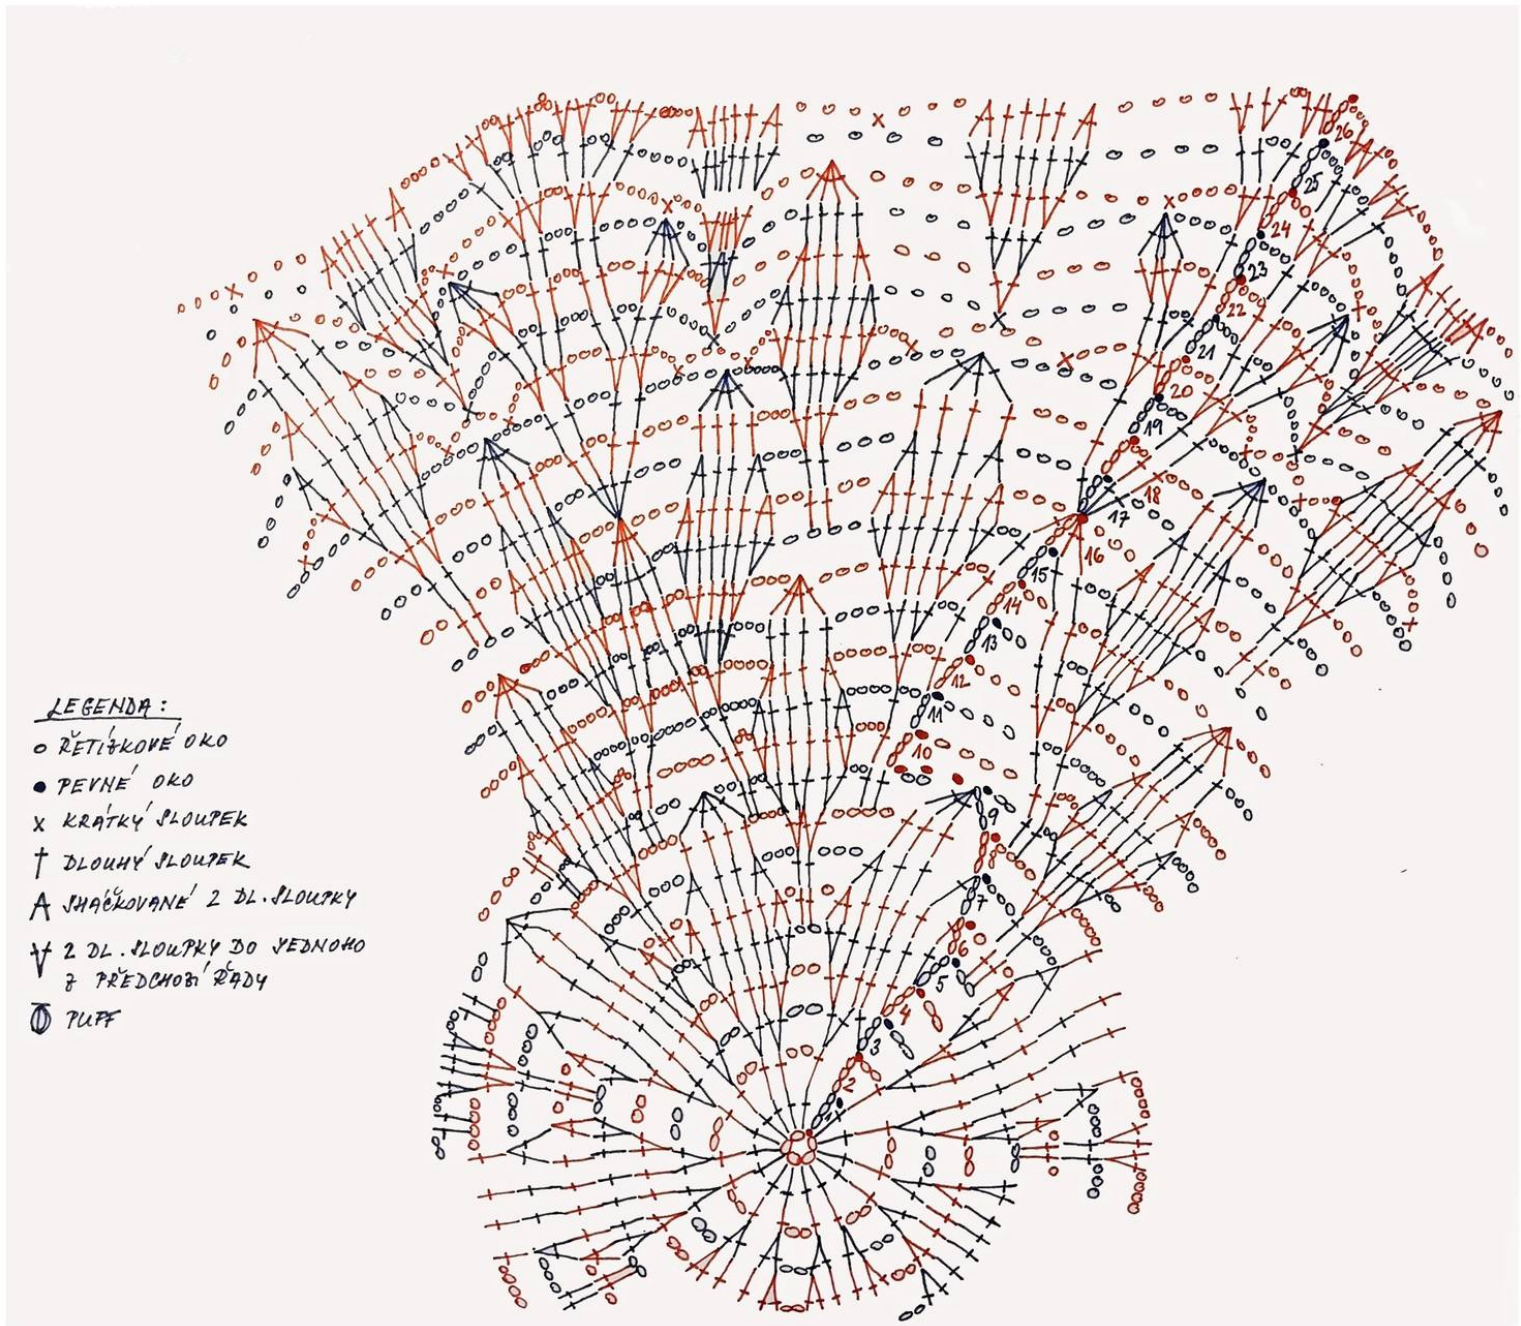 26
25
24
23
22
21
20
19
18
17
16
15
14
13
12
11
10
9
7
6
5
4
3
2
1
LEGENDA:
ŘETÍZKOVÉ OKO
PEVNÉ OKO
KRÁTKÝ SLOUPEK
DLOUHÝ SLOUPEK
SHÁČKOVANÉ 2 DL. SLOUPKY
2 DL. SLOUPKY DO JEDNOHO
Z PŘEDCHOZÍ ŘADY
PUFF